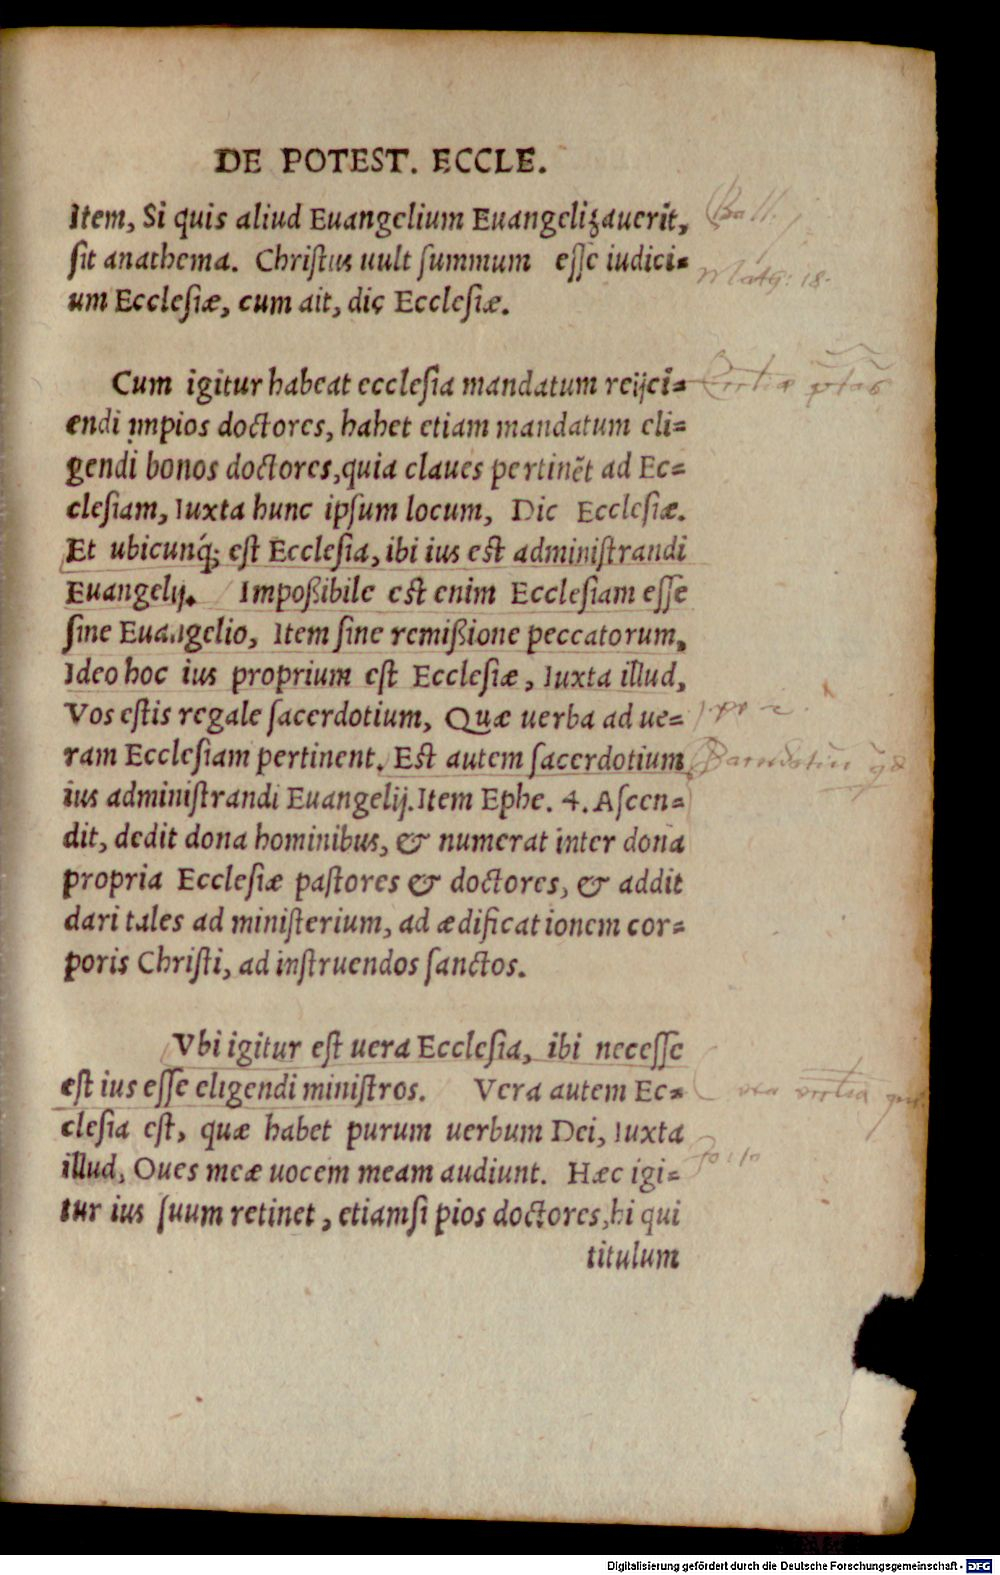 DE POTEST. ECCLE.
Item, Si quis aliud Euangelium Euangelizauerit,
sit anathema. Christus uult summum esse iudici=
um Ecclesiæ, cum ait, dic Ecclesiæ.
Matth: 18.
Cum igitur habeat ecclesia mandatum reijci=
endi impios doctores, habet etiam mandatum eli=
gendi bonos doctores, quia claues pertinẽt ad Ec=
clesiam, Iuxta hunc ipsum locum, Dic Ecclesiæ.
Et ubicunq́; est Ecclesia, ibi ius est administrandi
Euangelij. Impoßibile est enim Ecclesiam esse
sine Euangelio, Item sine remißione peccatorum,
Ideo hoc ius proprium est Ecclesiæ, Iuxta illud,
Vos estis regale sacerdotium, Quæ uerba ad ue=
ram Ecclesiam pertinent. Est autem sacerdotium
ius administrandi Euangelij. Item Ephe. 4. Ascen=
dit, dedit dona hominibus, & numerat inter dona
propria Ecclesiæ pastores & doctores, & addit
dari tales ad ministerium, ad ædificationem cor=
poris Christi, ad instruendos sanctos.
Vbi igitur est uera Ecclesia, ibi necesse
est ius esse eligendi ministros. Vera autem Ec=
clesia est, quæ habet purum uerbum Dei, Iuxta
illud, Oues meæ uocem meam audiunt. Hæc igi=
Jo: 10
tur ius suum retinet, etiamsi pios doctores, hi qui
titulum
Digitalisierung gefördert durch die Deutsche Forschungsgemeinschaft - DFG